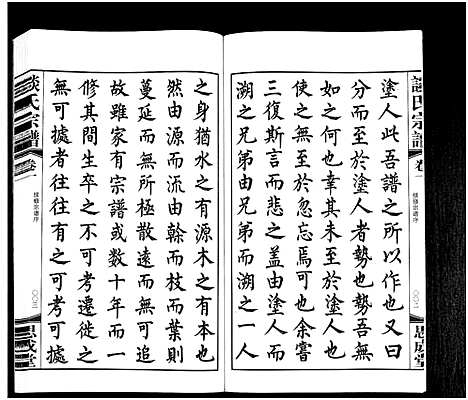 談氏宗譜 卷一
續修宗譜序
〇〇二
思成堂
塗人此吾譜之所以作也又曰
分而至於塗人者勢也勢吾無
如之何也幸其未至於塗人也
使之無至於忽忘焉可也余嘗
三復斯言而悲之盖由塗人而
溯之兄弟由兄弟而溯之一人
之身猶水之有源木之有本也
然由源而流由榦而枝而葉則
蔓延而無所極散遠而無可追
故雖家有宗譜或數十年而一
修其間生卒之不可考遷徙之
無可據者往往有之可考可據
談氏宗譜 卷一
續修宗譜序
〇〇三
思成堂